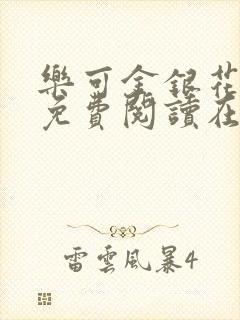 樂可金銀花
免費閱讀在
雷雲風暴4